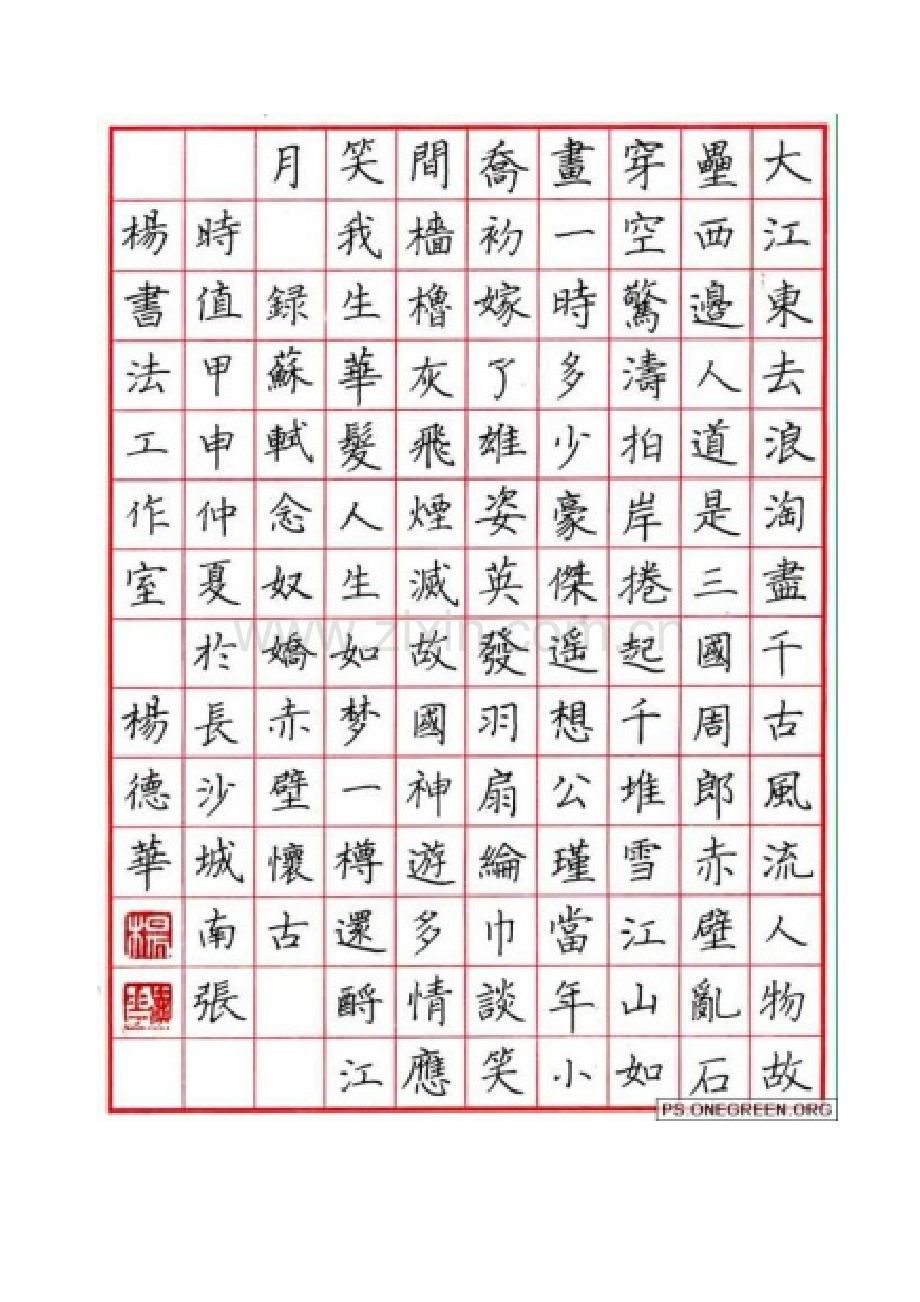 大江東去浪淘盡千古風流人物故
壘西邊人道是三國周郎赤壁亂石
穿空驚濤拍岸捲起千堆雪江山如
畫一時多少豪傑遥想公瑾當年小
喬初嫁了雄姿英發羽扇綸巾談笑
間檣櫓灰飛煙滅故國神遊多情應
笑我生華髮人生如梦一樽還酹江
月 録蘇軾念奴嬌赤壁懷古
時值甲申仲夏於長沙城南張
楊書法工作室 楊德華
www.zixin.com.cn
PS.ONEGREEN.ORG